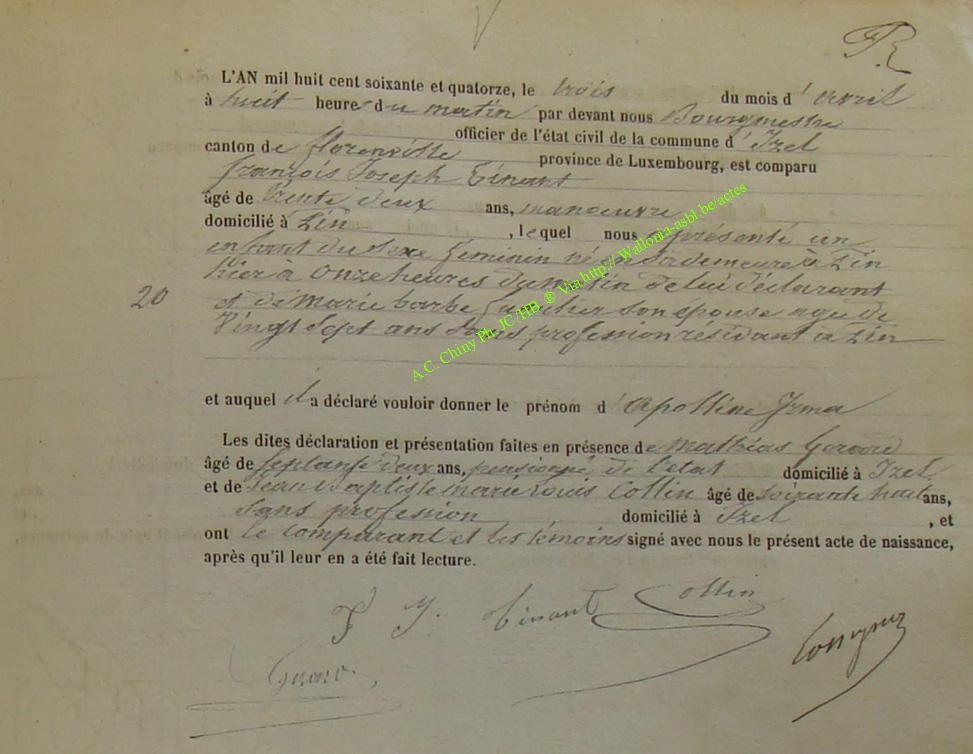 R
L'AN mil huit cent soixante et quatorze, le trois du mois d'avril
à huit heures du matin par devant nous Bourgmestre
officier de l'état civil de la commune d'Izel
canton de Florenville province de Luxembourg, est comparu
françois Joseph Tinant
âgé de trente deux ans, manoeuvre
domicilié à Zin, lequel nous a présenté un
enfant du sexe feminin né en sa demeure à Zin
hier à onze heures du matin de lui déclarant
20 et de Marie barbe son épouse agée de
Vingt sept ans sans profession résidant à Zin
et auquel il a déclaré vouloir donner le prénom d'Apolline Irma
Les dites déclaration et présentation faites en présence de Mathias Gerard
âgé de septante deux ans, pensionné de l'état domicilié à Izel
et de Jean Baptiste marie Louis Collin âgé de soixante huit ans,
sans profession domicilié à Izel, et
ont le comparant et les témoins signé avec nous le présent acte de naissance,
après qu'il leur en a été fait lecture.
F J. Tinant Collin
Gerard.
A.C. Chiny Ph. JC/HB. ® Via http://Wallonia-asbl.be/actes